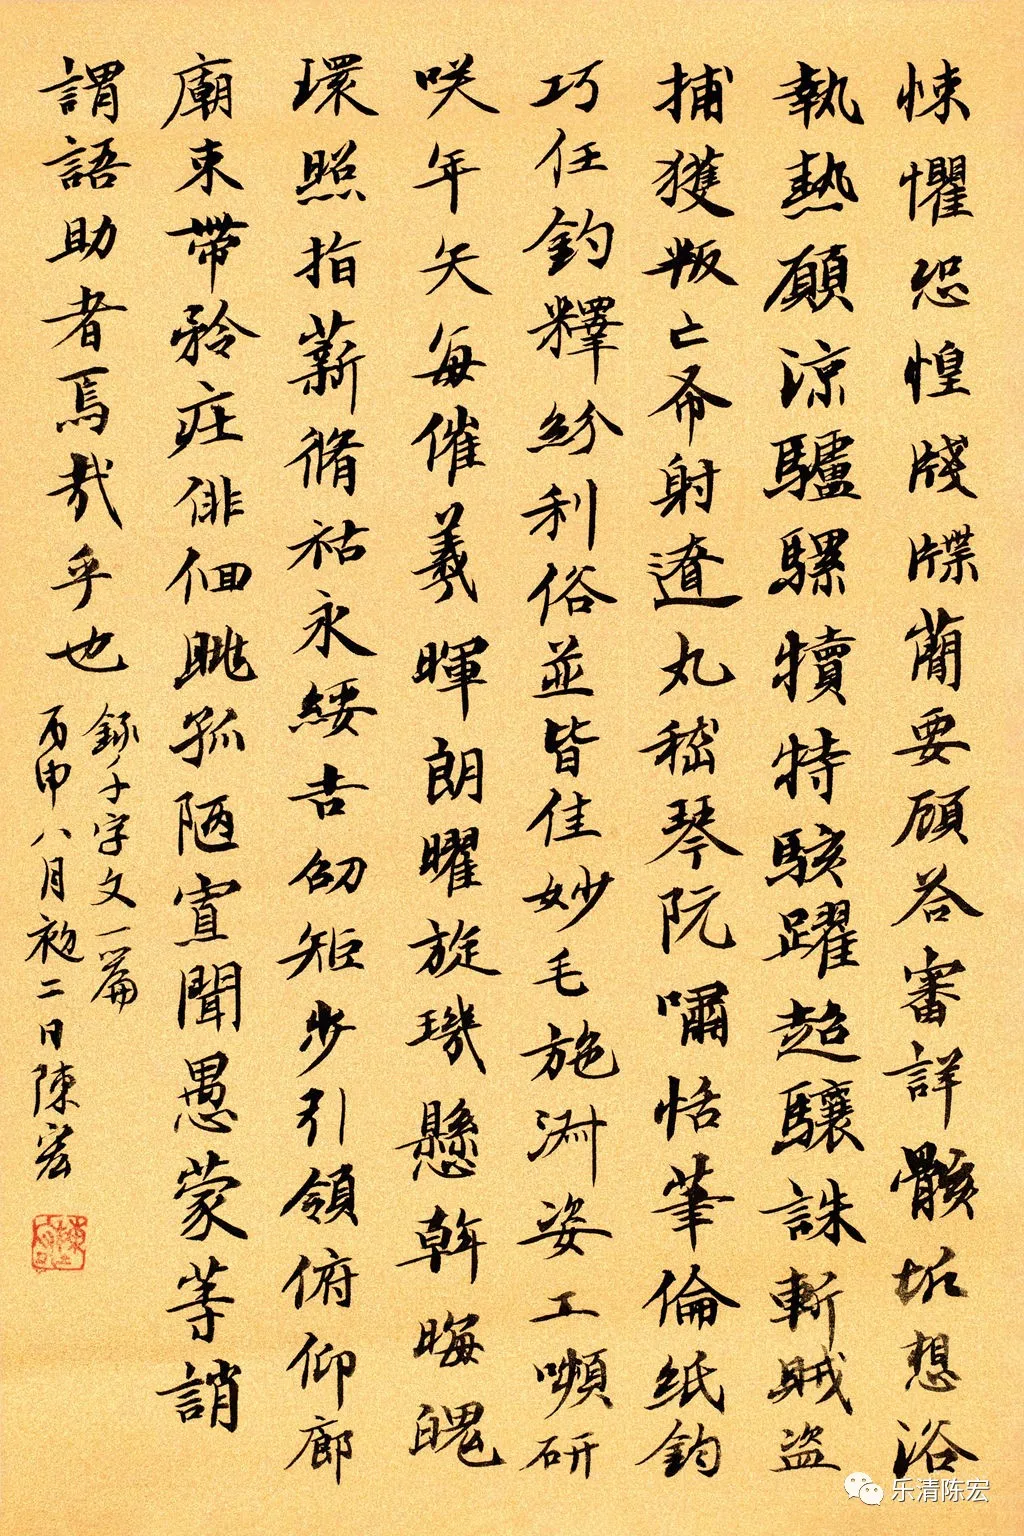 悚懼恐惶牋牒蕳要顧答審詳骸垢想浴
執熱願涼驢騾犢特駭躍超驤誅斬賊盜
捕獲叛亡布射遼丸嵇琴阮嘯恬筆倫紙鈞
巧任釣釋紛利俗並皆佳妙毛施淑姿工嚬研
咲年矢每催羲暉朗曜旋璣懸斡晦魄
環照指薪脩祜永綏吉劭矩步引領俯仰廊
廟束帶矜庄俳佪眺孤陋寡聞愚蒙等誚
謂語助者焉哉乎也
錄千字文一篇
丙申八月初二日陳宏
乐清陈宏